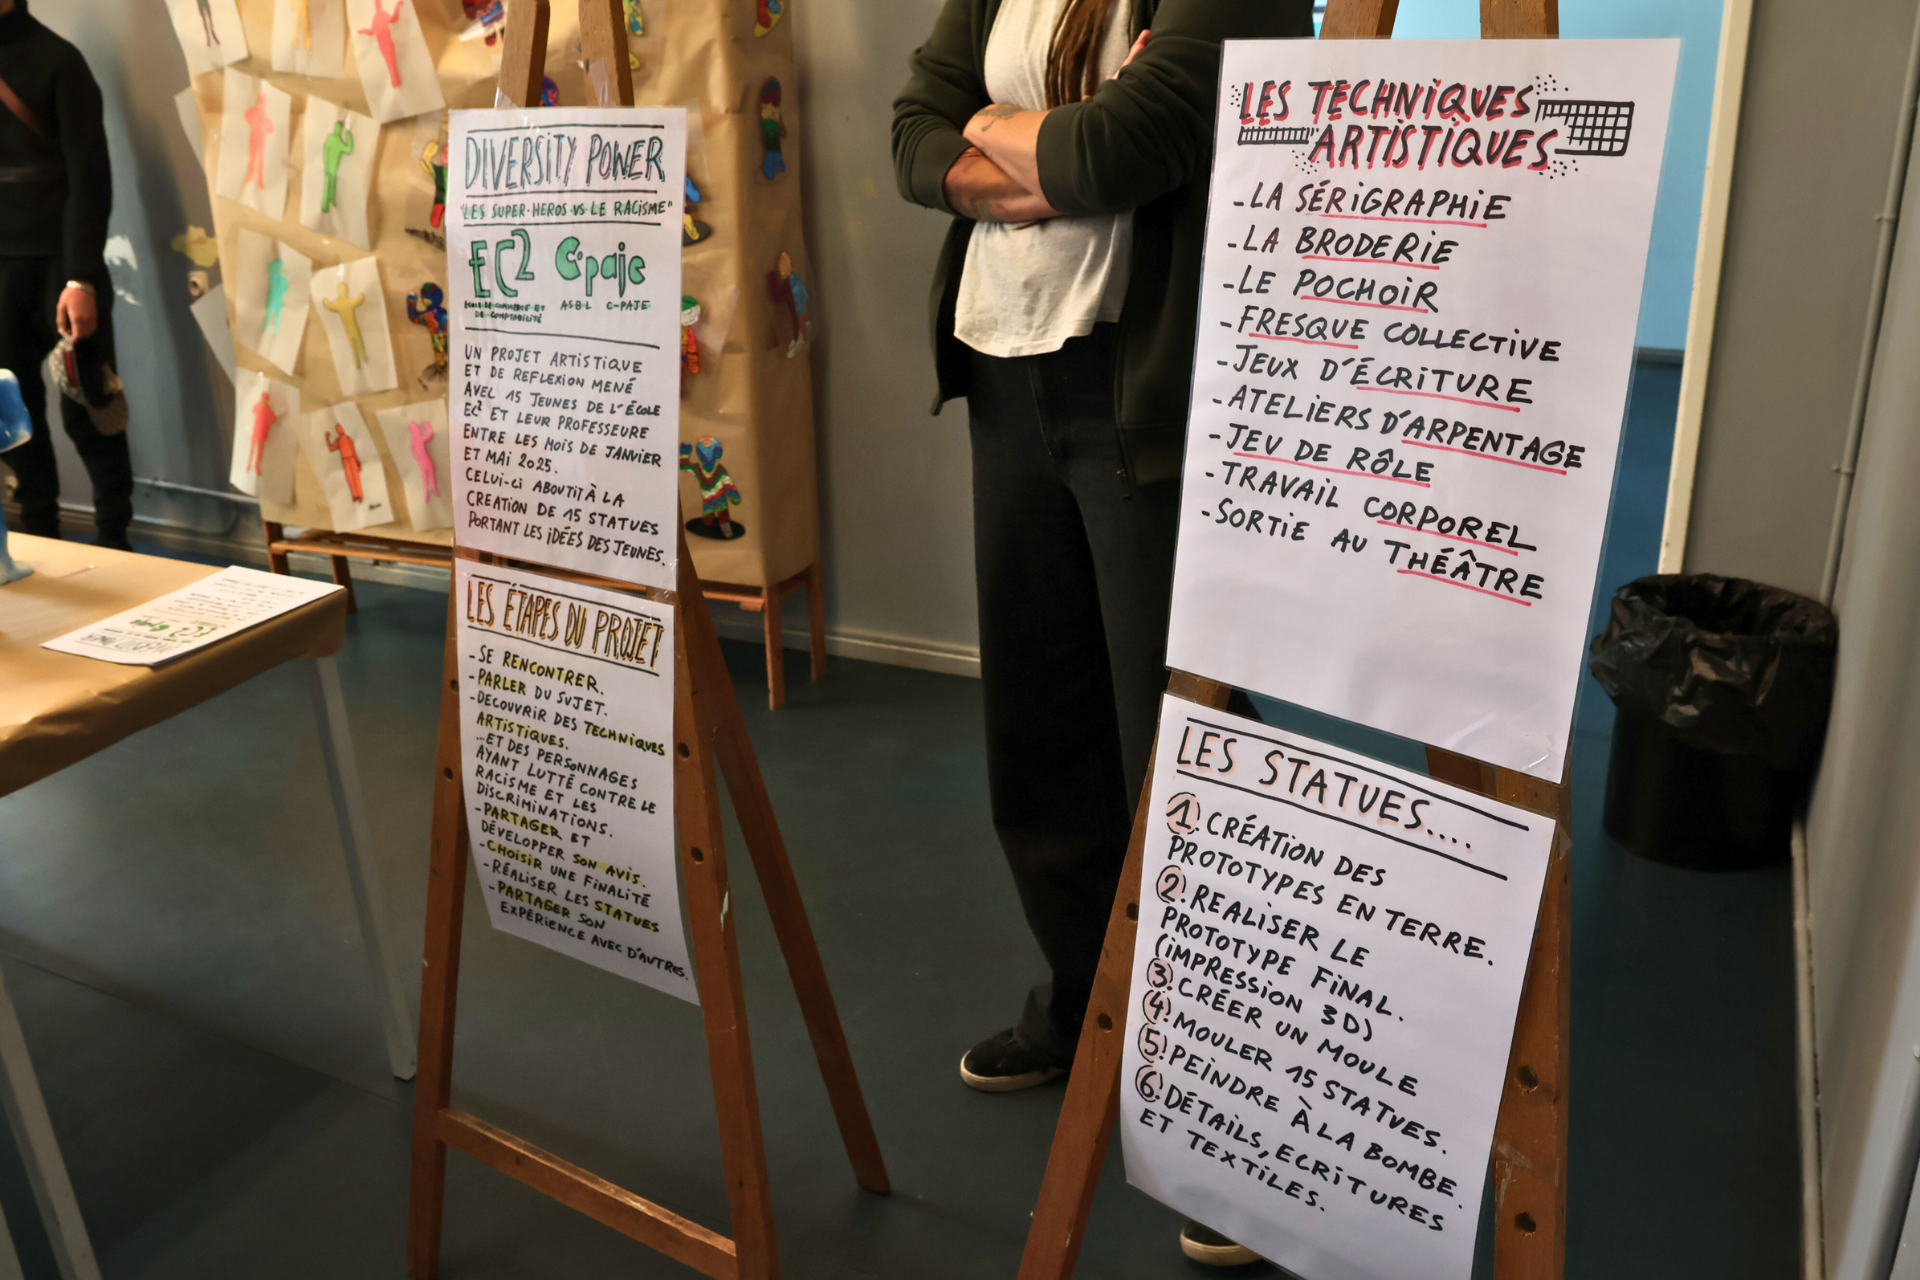 DIVERSITY POWER
"LES SUPER-HEROS VS LE RACISME"
EC2 C-paje
ECOLE DE COMMERCE ET
DE COMPTABILITÉ
ASBL C-PAJE
UN PROJET ARTISTIQUE
ET DE REFLEXION MENÉ
AVEC 15 JEUNES DE L'ÉCOLE
EC2 ET LEUR PROFESSEURE
ENTRE LES MOIS DE JANVIER
ET MAI 2025.
CELUI-CI ABOUTIT À LA
CREATION DE 15 STATUES
PORTANT LES IDÉES DES JEUNES.
LES ÉTAPES DU PROJET
- SE RENCONTRER.
- PARLER DU SUJET.
- DECOUVRIR DES TECHNIQUES
ARTISTIQUES.
...ET DES PERSONNAGES
AYANT LUTTÉ CONTRE LE
RACISME ET LES
DISCRIMINATIONS.
- PARTAGER ET
DÉVELOPPER SON AVIS.
- CHOISIR UNE FINALITÉ
- RÉALISER LES STATUES
- PARTAGER SON
EXPÉRIENCE AVEC D'AUTRES.
LES TECHNIQUES
ARTISTIQUES
- LA SÉRIGRAPHIE
- LA BRODERIE
- LE POCHOIR
- FRESQUE COLLECTIVE
- JEUX D'ÉCRITURE
- ATELIERS D'ARPENTAGE
- JEU DE RÔLE
- TRAVAIL CORPOREL
- SORTIE AU THÉÂTRE
LES STATUES....
1. CRÉATION DES
PROTOTYPES EN TERRE.
2. REALISER LE
PROTOTYPE FINAL.
(IMPRESSION 3D)
3. CRÉER UN MOULE
4. MOULER 15 STATUES.
5. PEINDRE À LA BOMBE.
6. DÉTAILS, ECRITURES
ET TEXTILES.